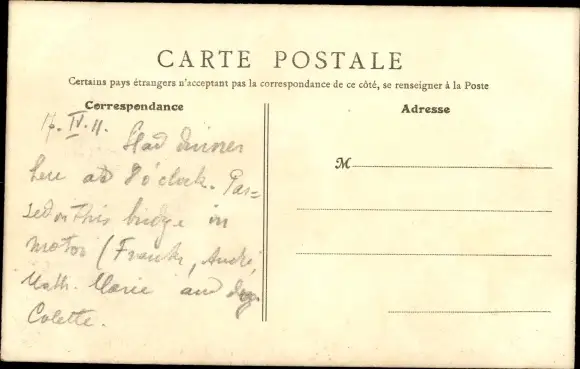 CARTE POSTALE
Certains pays étrangers n'acceptent pas la correspondance de ce côté, se renseigner à la Poste
Correspondance
17.IV.11.
Had dinner
here at 8 o'clock. Pas=
sed on this bridge in
motor (Frantz, André,
Math. Marie and
Colette.
Adresse
M